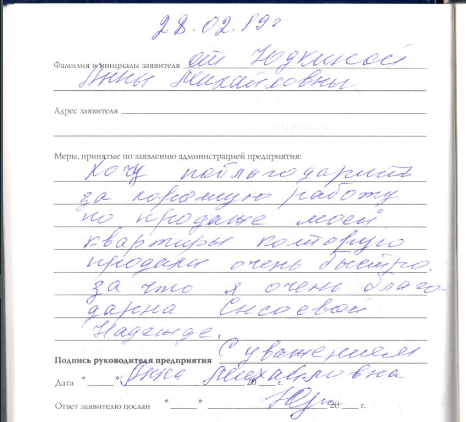 28.02.19г
Фамилия и инициалы заявителя от Юдкиной
Анны Михайловны
Адрес заявителя
Меры, принятые по заявлению администрацией предприятия:
Хочу поблагодарить
за хорошую работу
по продаже моей
квартиры которую
продали очень быстро.
за что я очень благо-
дарна Сысоевой
Надежде.
С уважением
Подпись руководителя предприятия
Дата "___" Анна Михайловна 20___г.
Ответ заявителю послан "___" 20___г.